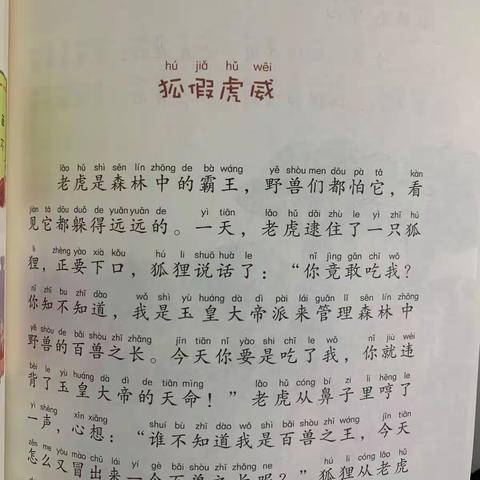 hú jiǎ hǔ wēi
狐假虎威
lǎo hǔ shì sēn lín zhōng de bà wáng yě shòu men dōu pà tā kàn
老虎是森林中的霸王，野兽们都怕它，看
jiàn tā dōu duǒ de yuǎn yuǎn de yì tiān lǎo hǔ dǎi zhù le yì zhī hú
见它都躲得远远的。一天，老虎逮住了一只狐
li zhèng yào xià kǒu hú li shuō huà le nǐ jìng gǎn chī wǒ
狸，正要下口，狐狸说话了：“你竟敢吃我？
nǐ zhī bu zhī dào wǒ shì yù huáng dà dì pài lái guǎn lǐ sēn lín zhōng
你知不知道，我是玉皇大帝派来管理森林中
yě shòu de bǎi shòu zhī zhǎng jīn tiān nǐ yào shi chī le wǒ nǐ jiù wéi
野兽的百兽之长。今天你要是吃了我，你就违
bèi le yù huáng dà dì de tiān mìng lǎo hǔ cóng bí zi li hēng le
背了玉皇大帝的天命！”老虎从鼻子里哼了
yì shēng xīn xiǎng shuí bù zhī dào wǒ shì bǎi shòu zhī wáng jīn tiān
一声，心想：“谁不知道我是百兽之王，今天
zěn me yòu mào chū lái yí gè bǎi shòu zhī zhǎng ne hú li cóng lǎo hǔ
怎么又冒出来一个百兽之长呢？”狐狸从老虎